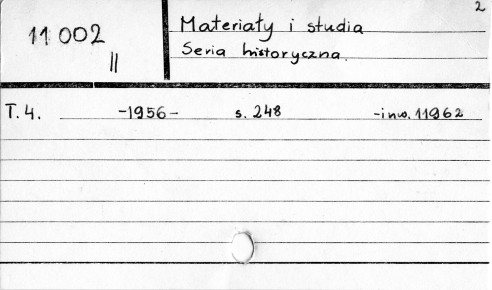 2
11 002
II
Materiały i studia
Seria historyczna.
T. 4. -1956- s. 248 -inw. 11962